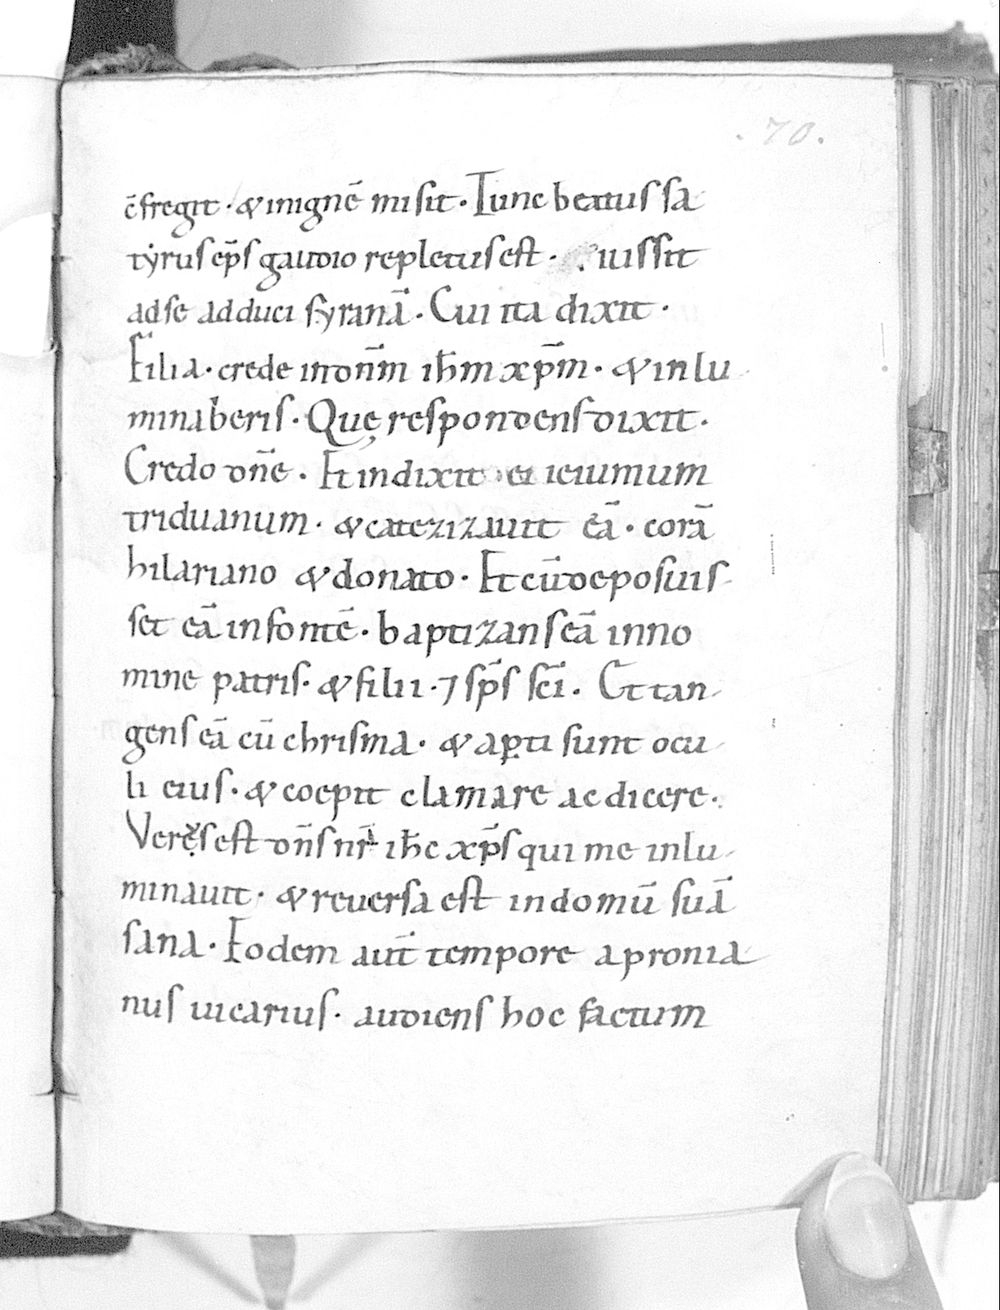 .70.
c̄fregit · & inignē misit · Tunc beatus sa
tyrus ep̄s gaudio repletus est · iussit
ad se adduci syranā · Cui ita dixit ·
Filia · crede in dn̄m ih̄m xp̄m · & inlu
minaberis · Quę respondens dixit ·
Credo dn̄e · Et indixit ei ieiunium
triduanum · & catezizauit eā · corā
hilariano & donato · Et cū deposuis
set eā in fontē · baptizans eā in no
mine patris · & filii · 7 sp̄s sc̄i · Et tan
gens eā cū chrisma · & apti sunt ocu
li eius · & coepit clamare ac dicere ·
Vere s est dn̄s nr̄ ih̄c xp̄s qui me inlu
minauit · & reuersa est in domū suā
sana · Eodem aut̄ tempore apronia
nus uicarius · audiens hoc factum